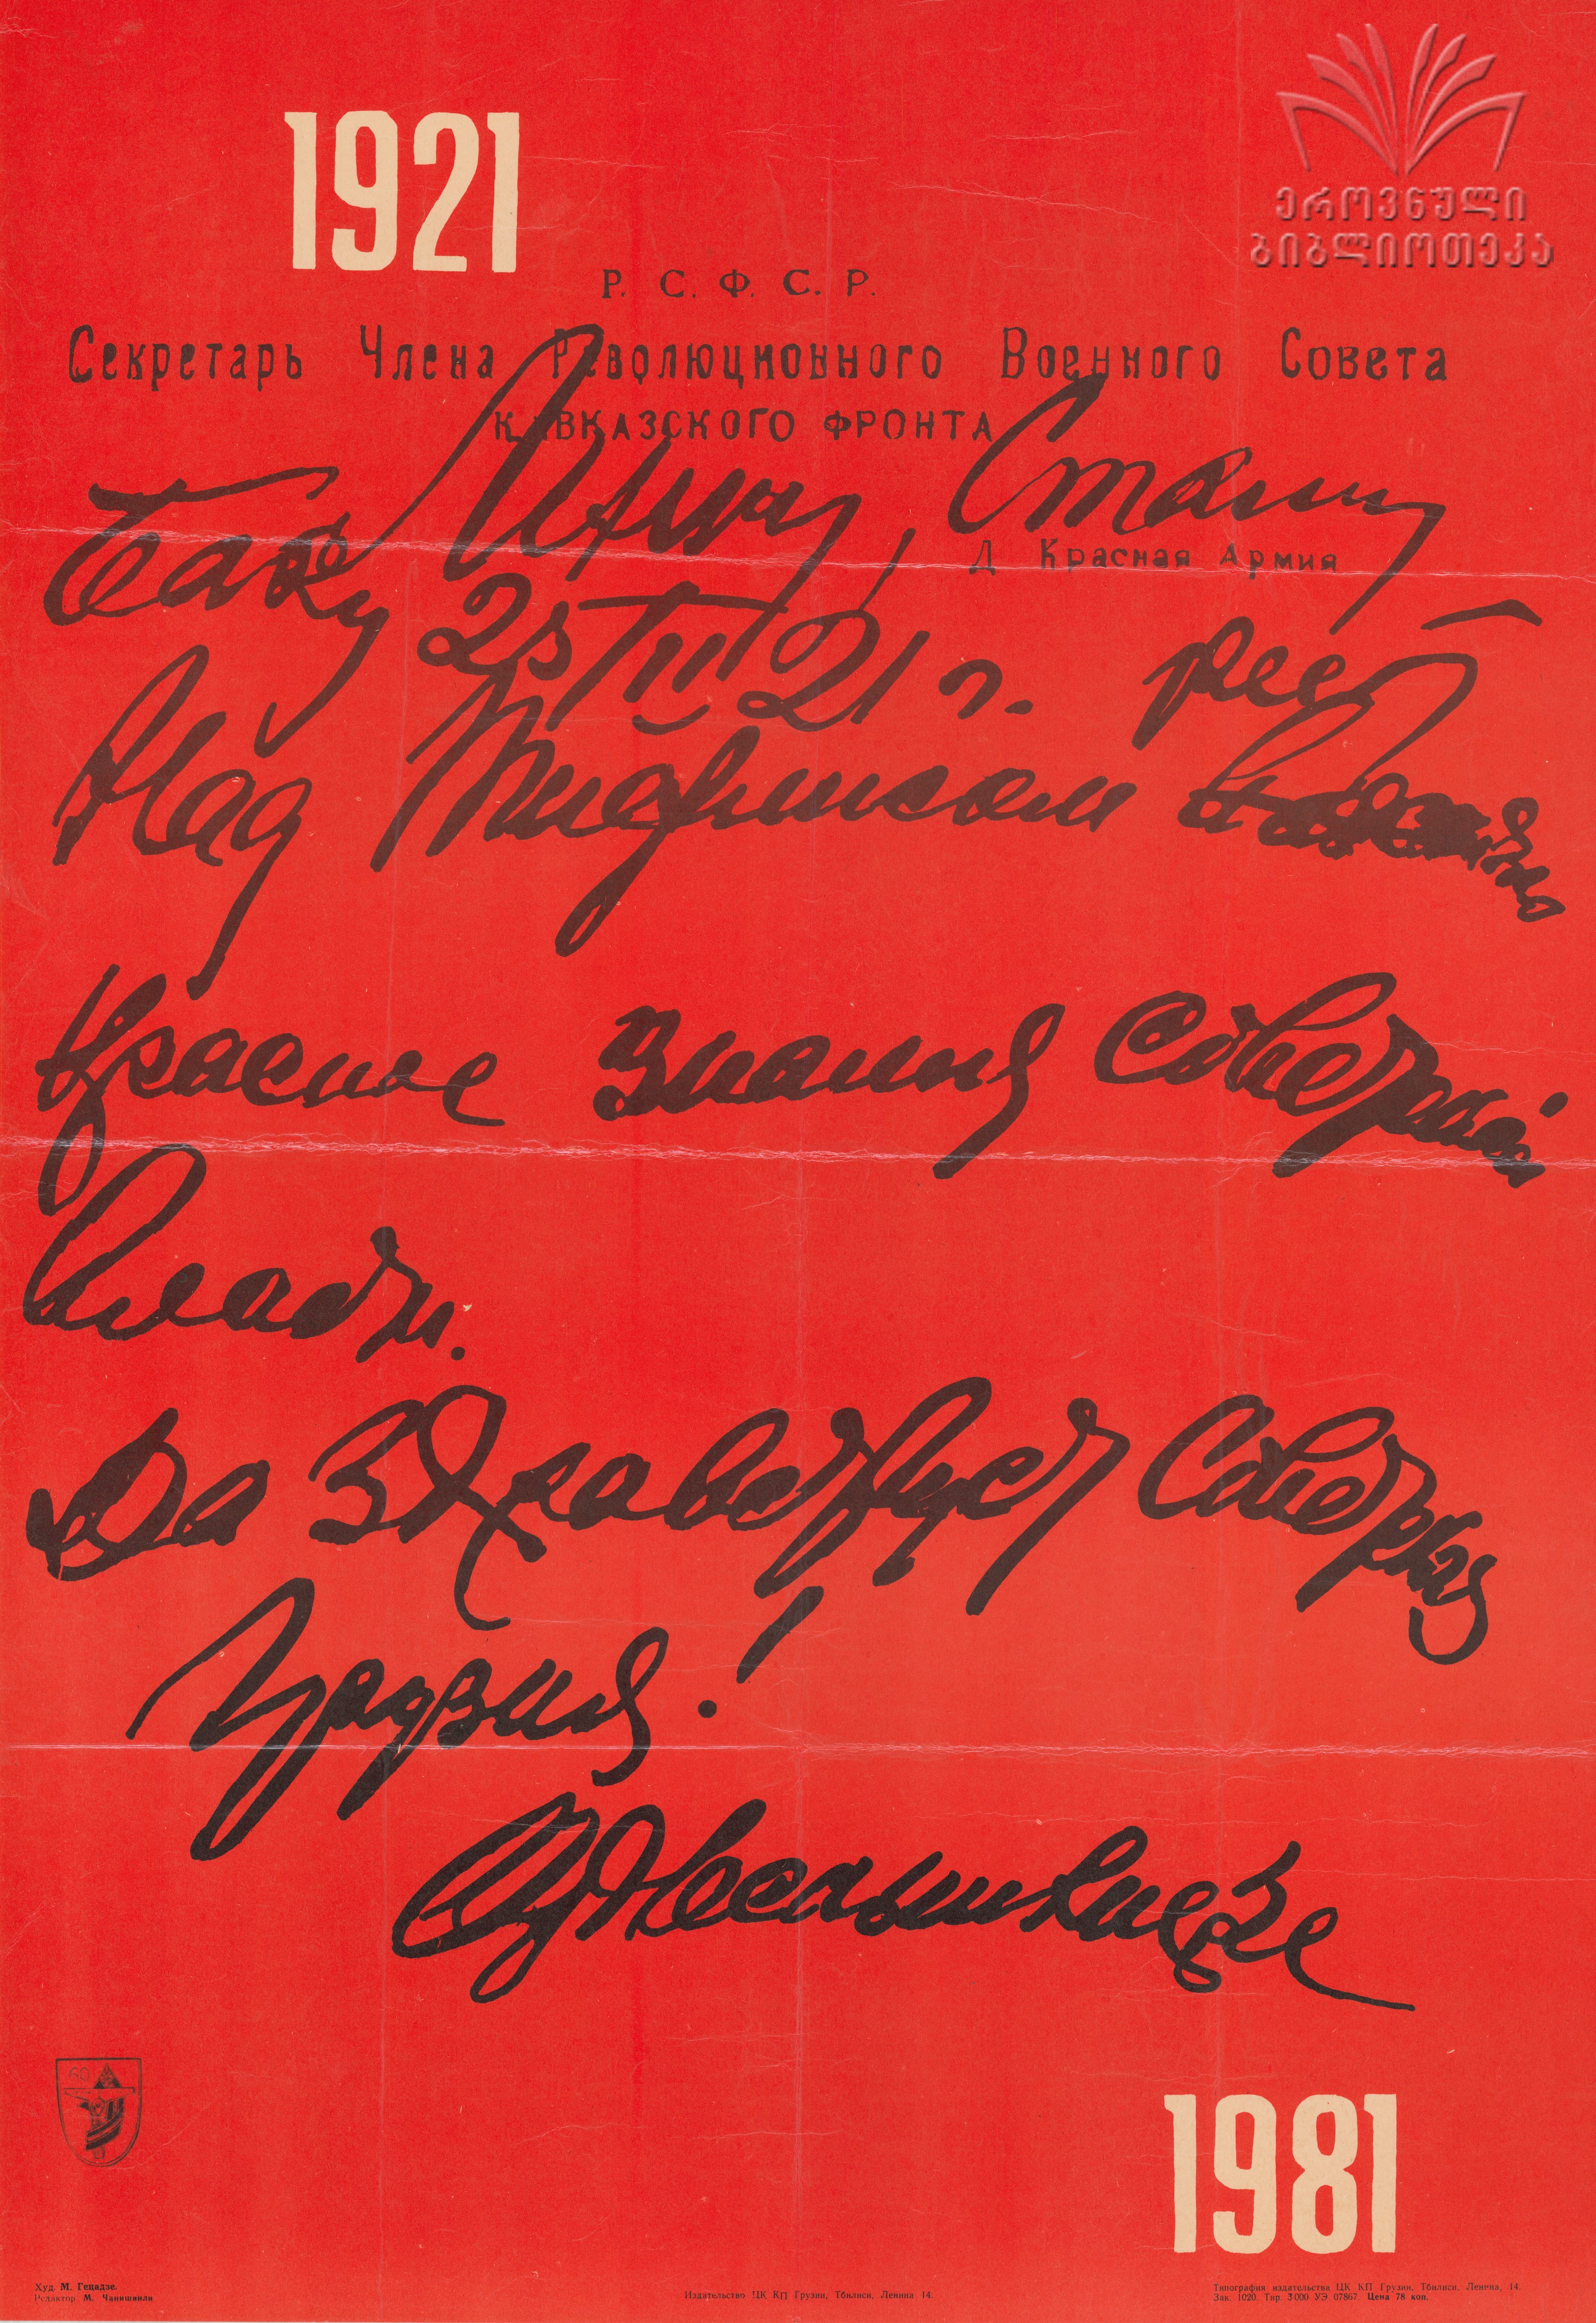 1921
ეროვნული
ბიბლიოთეკა
Р. С. Ф. С. Р.
Секретарь Члена Революционного Военного Совета
Кавказского фронта
Ленину, Сталину
Д. Красная Армия
Баку 25/II 21 г. реет
Над Тифлисом
Красное Знамя Советской
Власти.
Да Здравствует Советская
Грузия!
Орджоникидзе
60
1981
Худ. М. Гецадзе.
Редактор М. Чанишвили
Издательство ЦК КП Грузии, Тбилиси, Ленина 14.
Типография издательства ЦК КП Грузии, Тбилиси, Ленина, 14.
Зак. 1020. Тир. 3000 УЭ 07867. Цена 78 коп.